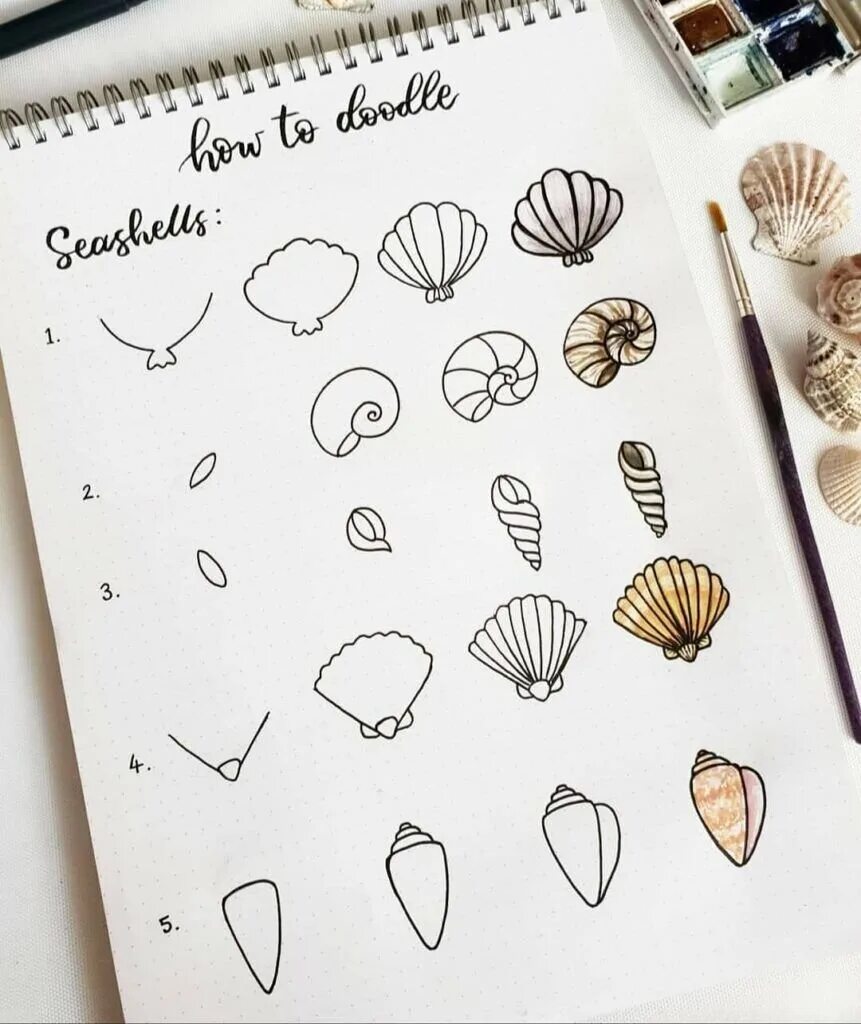 how to doodle
Seashells:
1.
2.
3.
4.
5.